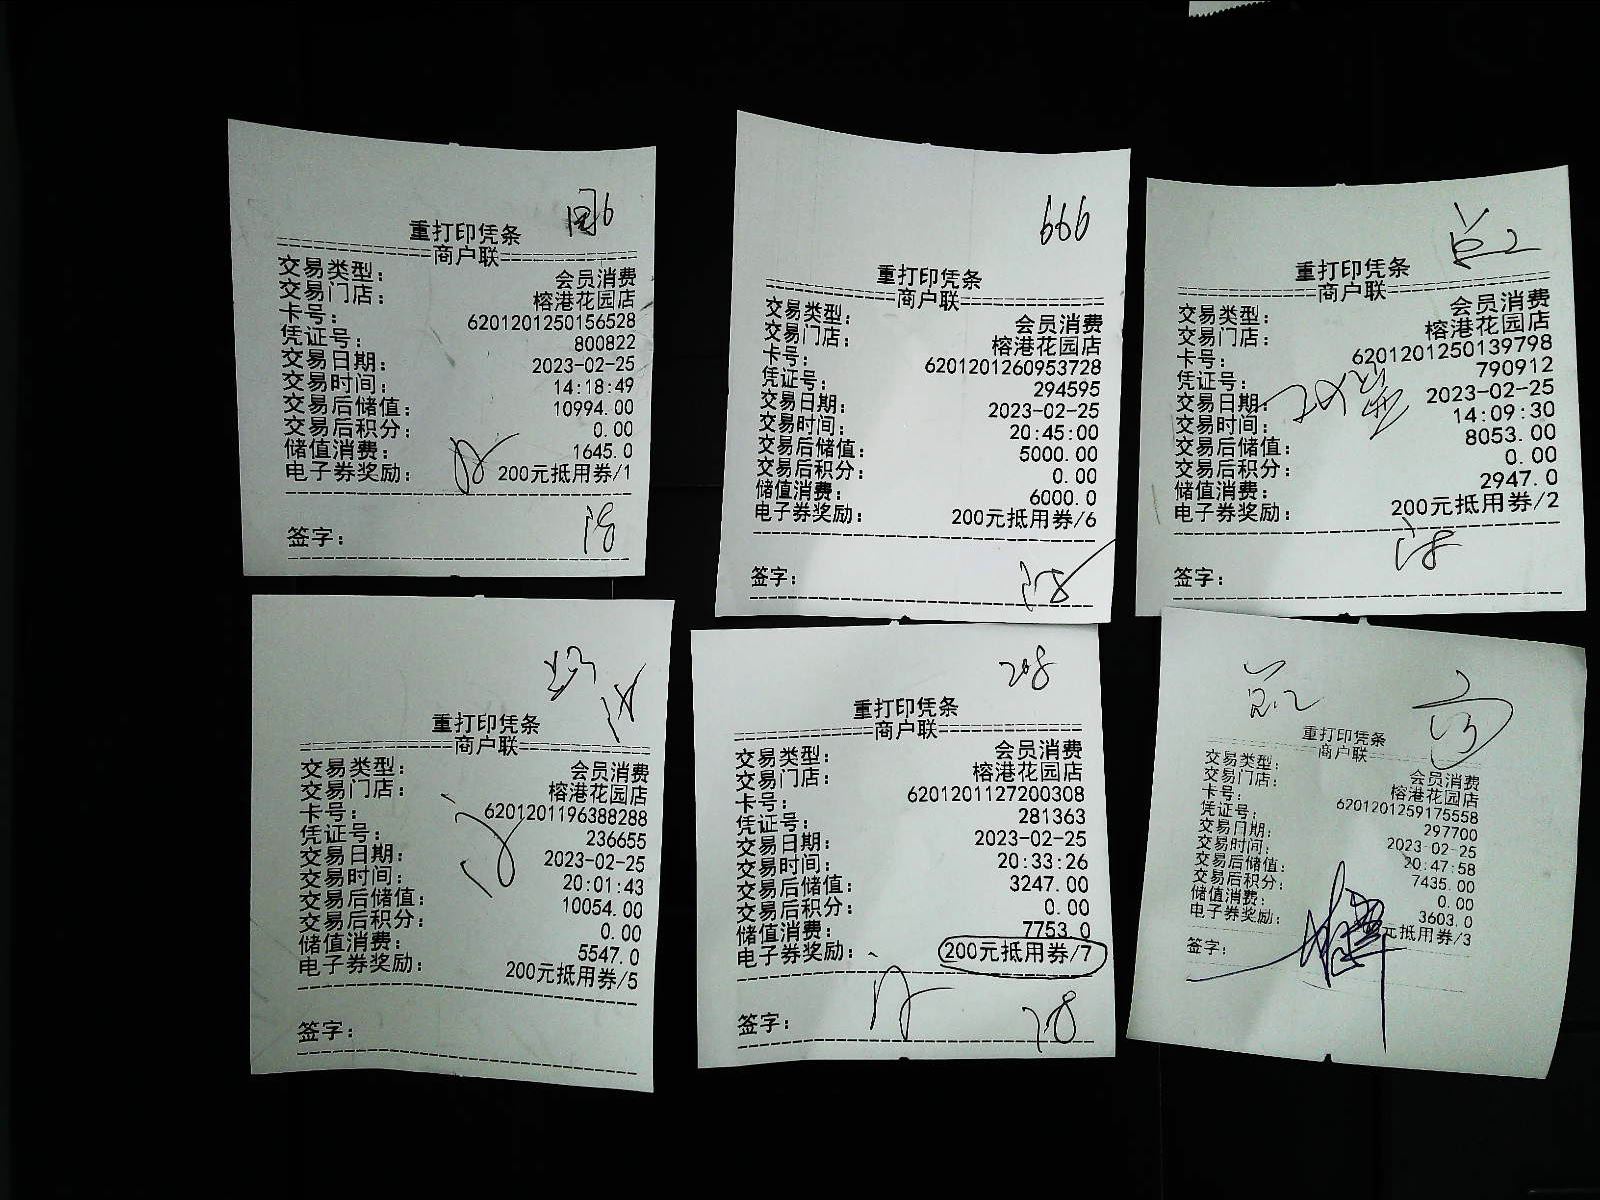 重打印凭条
商户联
交易类型： 会员消费
交易门店： 榕港花园店
卡号： 6201201250156528
凭证号： 800822
交易日期： 2023-02-25
交易时间： 14:18:49
交易后储值： 10994.00
交易后积分： 0.00
储值消费： 1645.0
电子券奖励： 200元抵用券/1
签字：
666
重打印凭条
商户联
交易类型： 会员消费
交易门店： 榕港花园店
卡号： 6201201260953728
凭证号： 294595
交易日期： 2023-02-25
交易时间： 20:45:00
交易后储值： 5000.00
交易后积分： 0.00
储值消费： 6000.0
电子券奖励： 200元抵用券/6
签字：
重打印凭条
商户联
交易类型： 会员消费
交易门店： 榕港花园店
卡号： 6201201250139798
凭证号： 790912
交易日期： 2023-02-25
交易时间： 14:09:30
交易后储值： 8053.00
交易后积分： 0.00
储值消费： 2947.0
电子券奖励： 200元抵用券/2
签字：
重打印凭条
商户联
交易类型： 会员消费
交易门店： 榕港花园店
卡号： 6201201196388288
凭证号： 236655
交易日期： 2023-02-25
交易时间： 20:01:43
交易后储值： 10054.00
交易后积分： 0.00
储值消费： 5547.0
电子券奖励： 200元抵用券/5
签字：
重打印凭条
商户联
交易类型： 会员消费
交易门店： 榕港花园店
卡号： 6201201127200308
凭证号： 281363
交易日期： 2023-02-25
交易时间： 20:33:26
交易后储值： 3247.00
交易后积分： 0.00
储值消费： 7753.0
电子券奖励： 200元抵用券/7
签字：
重打印凭条
商户联
交易类型： 会员消费
交易门店： 榕港花园店
卡号： 6201201259175558
凭证号： 297700
交易日期： 2023-02-25
交易时间： 20:47:58
交易后储值： 7435.00
交易后积分： 0.00
储值消费： 3603.0
电子券奖励： 元抵用券/3
签字：